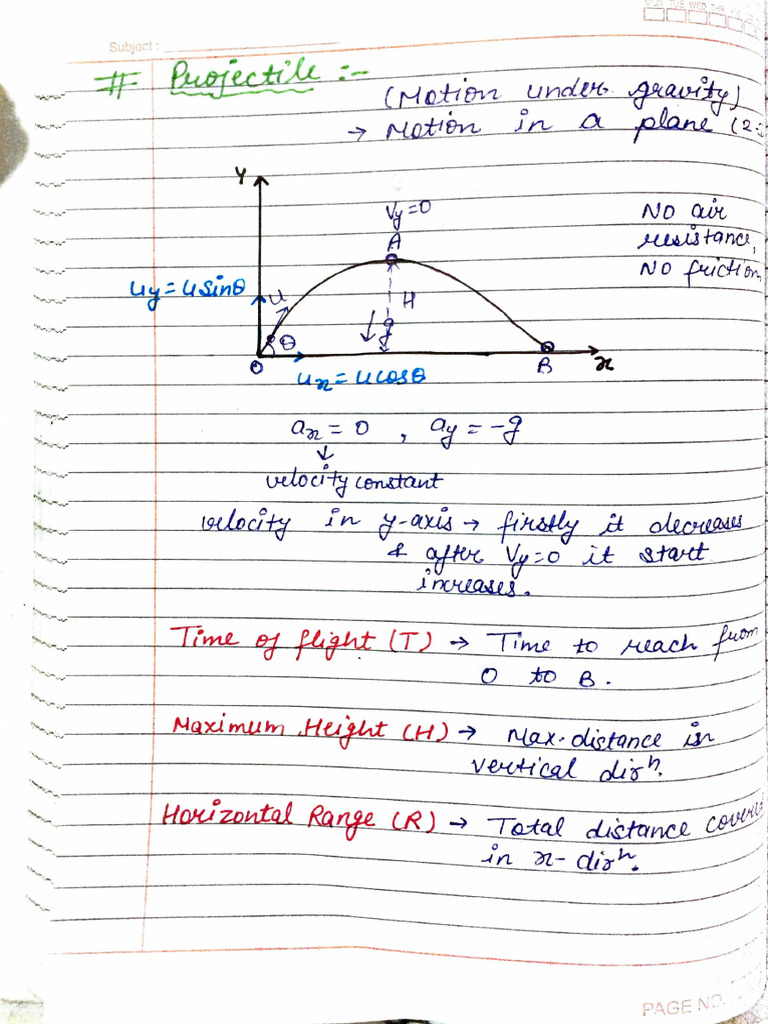 MON TUE WED THR
Subject :
# Projectile :-
(Motion under gravity)
→ Motion in a plane (2-
Y
Vy=0
A
No air
resistance,
No friction
uy = usinθ
u
H
g
θ
O
B
x
ux = ucosθ
ax = 0 , ay = -g
↓
velocity constant
velocity in y-axis → firstly it decreases
& after Vy=0 it start
increases.
Time of flight (T) → Time to reach from
O to B.
Maximum Height (H) → Max. distance in
vertical dirⁿ.
Horizontal Range (R) → Total distance covere
in x-dirⁿ.
PAGE NO.